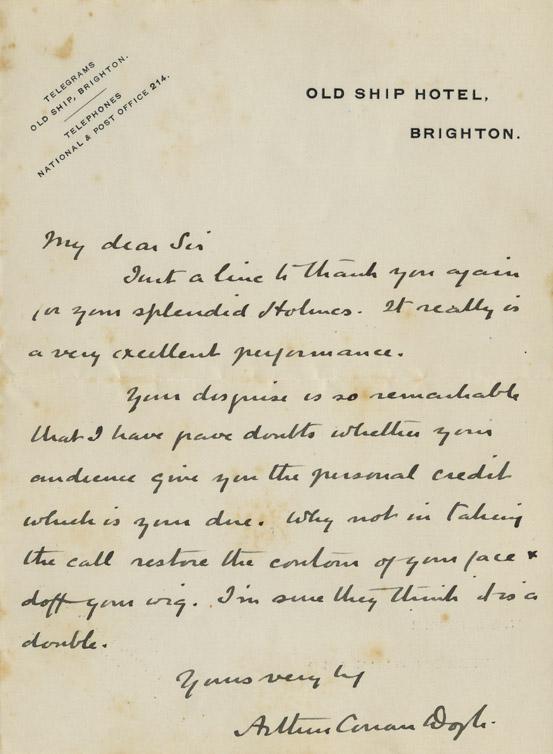 TELEGRAMS
OLD SHIP, BRIGHTON.
TELEPHONES
NATIONAL & POST OFFICE 214.
OLD SHIP HOTEL,
BRIGHTON.
My dear Sir
Just a line to thank you again
for your splendid Holmes. It really is
a very excellent performance.
Your disguise is so remarkable
that I have grave doubts whether your
audience give you the personal credit
which is your due. Why not in taking
the call restore the contour of your face &
doff your wig. I'm sure they think it is a
double.
Yours very try
Arthur Conan Doyle.